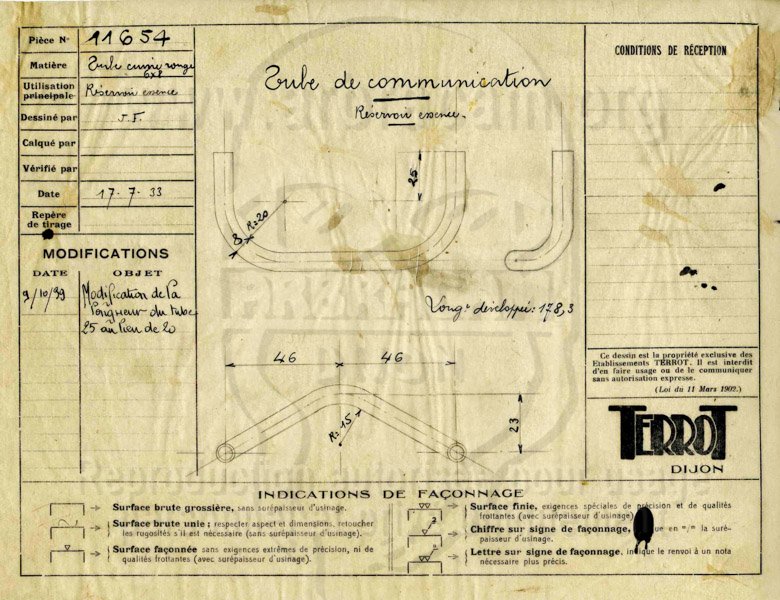 Pièce N° 11654
Matière Tube cuivre rouge
6x8
Utilisation principale Réservoir essence
Dessiné par J.F.
Calqué par
Vérifié par
Date 17-7-33
Repère de tirage
MODIFICATIONS
DATE OBJET
9/10/39 Modification de la
longueur du tube
25 au lieu de 20
Tube de communication
Réservoir essence.
25
R=20
8
Longr développée: 178,3
46 46
R=15
23
CONDITIONS DE RÉCEPTION
Ce dessin est la propriété exclusive des
Etablissements TERROT. Il est interdit
d'en faire usage ou de le communiquer
sans autorisation expresse.
(Loi du 11 Mars 1902.)
TERROT
DIJON
INDICATIONS DE FAÇONNAGE
Surface brute grossière, sans surépaisseur d'usinage.
Surface brute unie ; respecter aspect et dimensions, retoucher
les rugosités s'il est nécessaire (sans surépaisseur d'usinage).
Surface façonnée sans exigences extrêmes de précision, ni de
qualités frottantes (avec surépaisseur d'usinage).
Surface finie, exigences spéciales de précision et de qualités
frottantes (avec surépaisseur d'usinage)
Chiffre sur signe de façonnage, en "/" la suré-
paisseur d'usinage.
Lettre sur signe de façonnage, indique le renvoi à un nota
nécessaire plus précis.